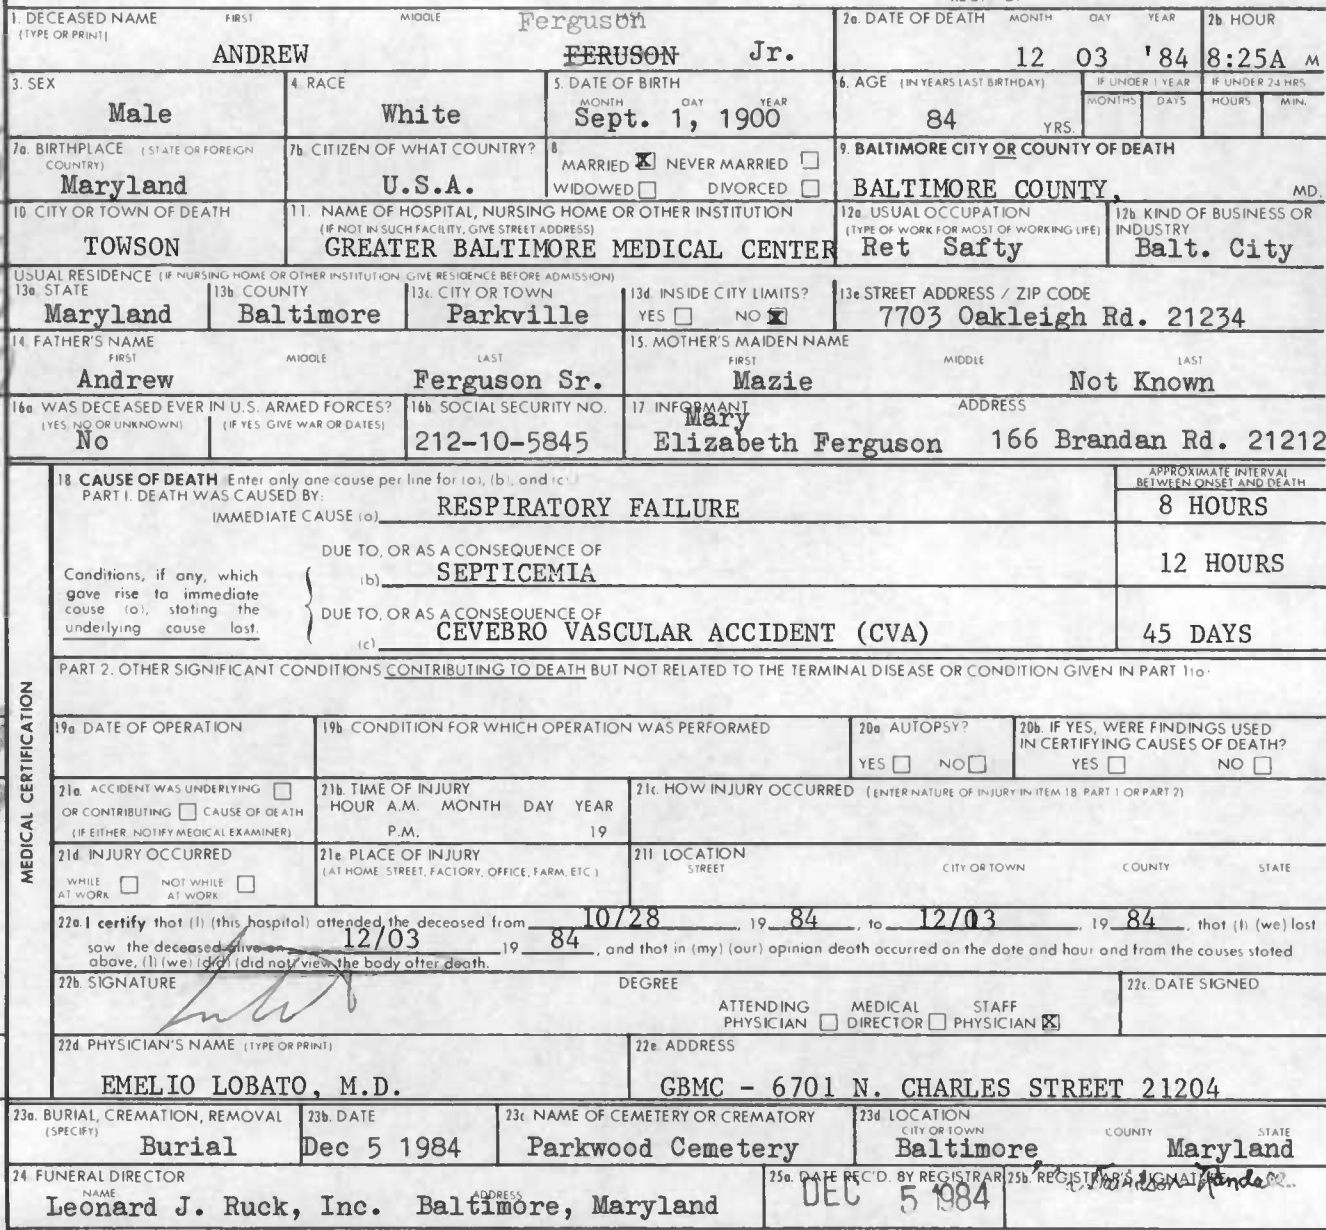 1. DECEASED NAME FIRST MIDDLE Ferguson
(TYPE OR PRINT)
ANDREW FERUSON Jr.
2a. DATE OF DEATH MONTH DAY YEAR
12 03 '84
2b. HOUR
8:25A M
3. SEX
Male
4. RACE
White
5. DATE OF BIRTH
MONTH DAY YEAR
Sept. 1, 1900
6. AGE (IN YEARS LAST BIRTHDAY)
84 YRS.
IF UNDER 1 YEAR
MONTHS DAYS
IF UNDER 24 HRS
HOURS MIN.
7a. BIRTHPLACE (STATE OR FOREIGN
COUNTRY)
Maryland
7b. CITIZEN OF WHAT COUNTRY?
U.S.A.
8
MARRIED X NEVER MARRIED
WIDOWED DIVORCED
9. BALTIMORE CITY OR COUNTY OF DEATH
BALTIMORE COUNTY, MD.
10 CITY OR TOWN OF DEATH
TOWSON
11. NAME OF HOSPITAL, NURSING HOME OR OTHER INSTITUTION
(IF NOT IN SUCH FACILITY, GIVE STREET ADDRESS)
GREATER BALTIMORE MEDICAL CENTER
12a USUAL OCCUPATION
(TYPE OF WORK FOR MOST OF WORKING LIFE)
Ret Safty
12b KIND OF BUSINESS OR
INDUSTRY
Balt. City
USUAL RESIDENCE (IF NURSING HOME OR OTHER INSTITUTION GIVE RESIDENCE BEFORE ADMISSION)
13a STATE
Maryland
13b COUNTY
Baltimore
13c. CITY OR TOWN
Parkville
13d INSIDE CITY LIMITS?
YES NO X
13e STREET ADDRESS / ZIP CODE
7703 Oakleigh Rd. 21234
14. FATHER'S NAME
FIRST MIDDLE LAST
Andrew Ferguson Sr.
15. MOTHER'S MAIDEN NAME
FIRST MIDDLE LAST
Mazie Not Known
16a WAS DECEASED EVER IN U.S. ARMED FORCES?
(YES, NO OR UNKNOWN) (IF YES GIVE WAR OR DATES)
No
16b. SOCIAL SECURITY NO.
212-10-5845
17 INFORMANT ADDRESS
Mary
Elizabeth Ferguson 166 Brandan Rd. 21212
MEDICAL CERTIFICATION
18 CAUSE OF DEATH Enter only one cause per line for (a), (b), and (c)
PART I. DEATH WAS CAUSED BY:
APPROXIMATE INTERVAL
BETWEEN ONSET AND DEATH
IMMEDIATE CAUSE (a) RESPIRATORY FAILURE 8 HOURS
DUE TO, OR AS A CONSEQUENCE OF
(b) SEPTICEMIA 12 HOURS
Conditions, if any, which
gave rise to immediate
cause (a), stating the
underlying cause last.
DUE TO, OR AS A CONSEQUENCE OF
(c) CEVEBRO VASCULAR ACCIDENT (CVA) 45 DAYS
PART 2. OTHER SIGNIFICANT CONDITIONS CONTRIBUTING TO DEATH BUT NOT RELATED TO THE TERMINAL DISEASE OR CONDITION GIVEN IN PART 1(a)
19a DATE OF OPERATION
19b CONDITION FOR WHICH OPERATION WAS PERFORMED
20a AUTOPSY?
YES NO
20b. IF YES, WERE FINDINGS USED
IN CERTIFYING CAUSES OF DEATH?
YES NO
21a. ACCIDENT WAS UNDERLYING
OR CONTRIBUTING CAUSE OF DEATH
(IF EITHER NOTIFY MEDICAL EXAMINER)
21b. TIME OF INJURY
HOUR A.M. MONTH DAY YEAR
P.M. 19
21c. HOW INJURY OCCURRED (ENTER NATURE OF INJURY IN ITEM 18 PART 1 OR PART 2)
21d INJURY OCCURRED
WHILE AT WORK NOT WHILE AT WORK
21e PLACE OF INJURY
(AT HOME, STREET, FACTORY, OFFICE, FARM, ETC)
21f LOCATION
STREET CITY OR TOWN COUNTY STATE
22a. I certify that (I) (this hospital) attended the deceased from 10/28, 19 84, to 12/03, 19 84, that (I) (we) last
saw the deceased alive on 12/03 19 84, and that in (my) (our) opinion death occurred on the date and hour and from the causes stated
above, (I) (we) (did) (did not) view the body after death.
22b. SIGNATURE DEGREE
ATTENDING PHYSICIAN MEDICAL DIRECTOR STAFF PHYSICIAN X
22c. DATE SIGNED
22d PHYSICIAN'S NAME (TYPE OR PRINT)
EMELIO LOBATO, M.D.
22e. ADDRESS
GBMC - 6701 N. CHARLES STREET 21204
23a. BURIAL, CREMATION, REMOVAL
(SPECIFY)
Burial
23b. DATE
Dec 5 1984
23c NAME OF CEMETERY OR CREMATORY
Parkwood Cemetery
23d LOCATION
CITY OR TOWN COUNTY STATE
Baltimore, Maryland
24 FUNERAL DIRECTOR
NAME ADDRESS
Leonard J. Ruck, Inc. Baltimore, Maryland
25a. DATE REC'D. BY REGISTRAR
DEC 5 1984
25b. REGISTRAR'S SIGNATURE